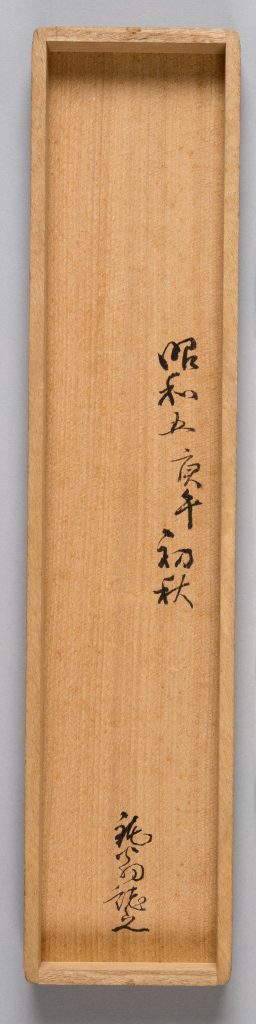 昭和五庚午初秋
翁誌之